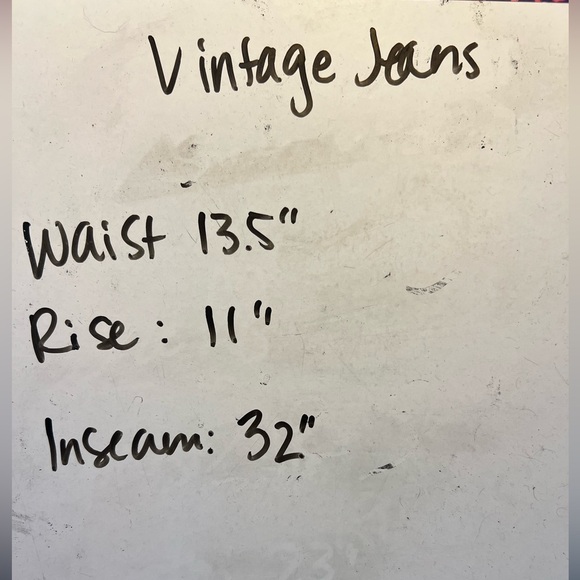 Vintage Jeans
Waist 13.5"
Rise: 11"
Inseam: 32"